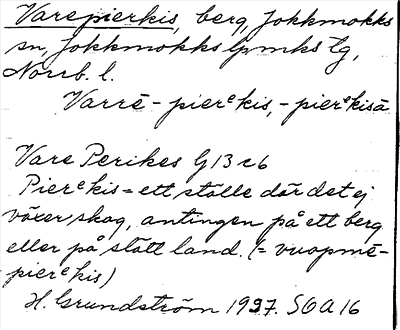 Varepierkis, berg, Jokkmokks
sn, Jokkmokks lpmks tg,
Norrb. l.
Varrē-pierᵉkis, -pierᵉkisa
Vare Perikes G 13 c 6
Pierᵉkis = ett ställe där det ej
växer skog, antingen på ett berg
eller på slätt land. (= vuopmē-
pierᵉkis)
H. Grundström 1937. SOA 16